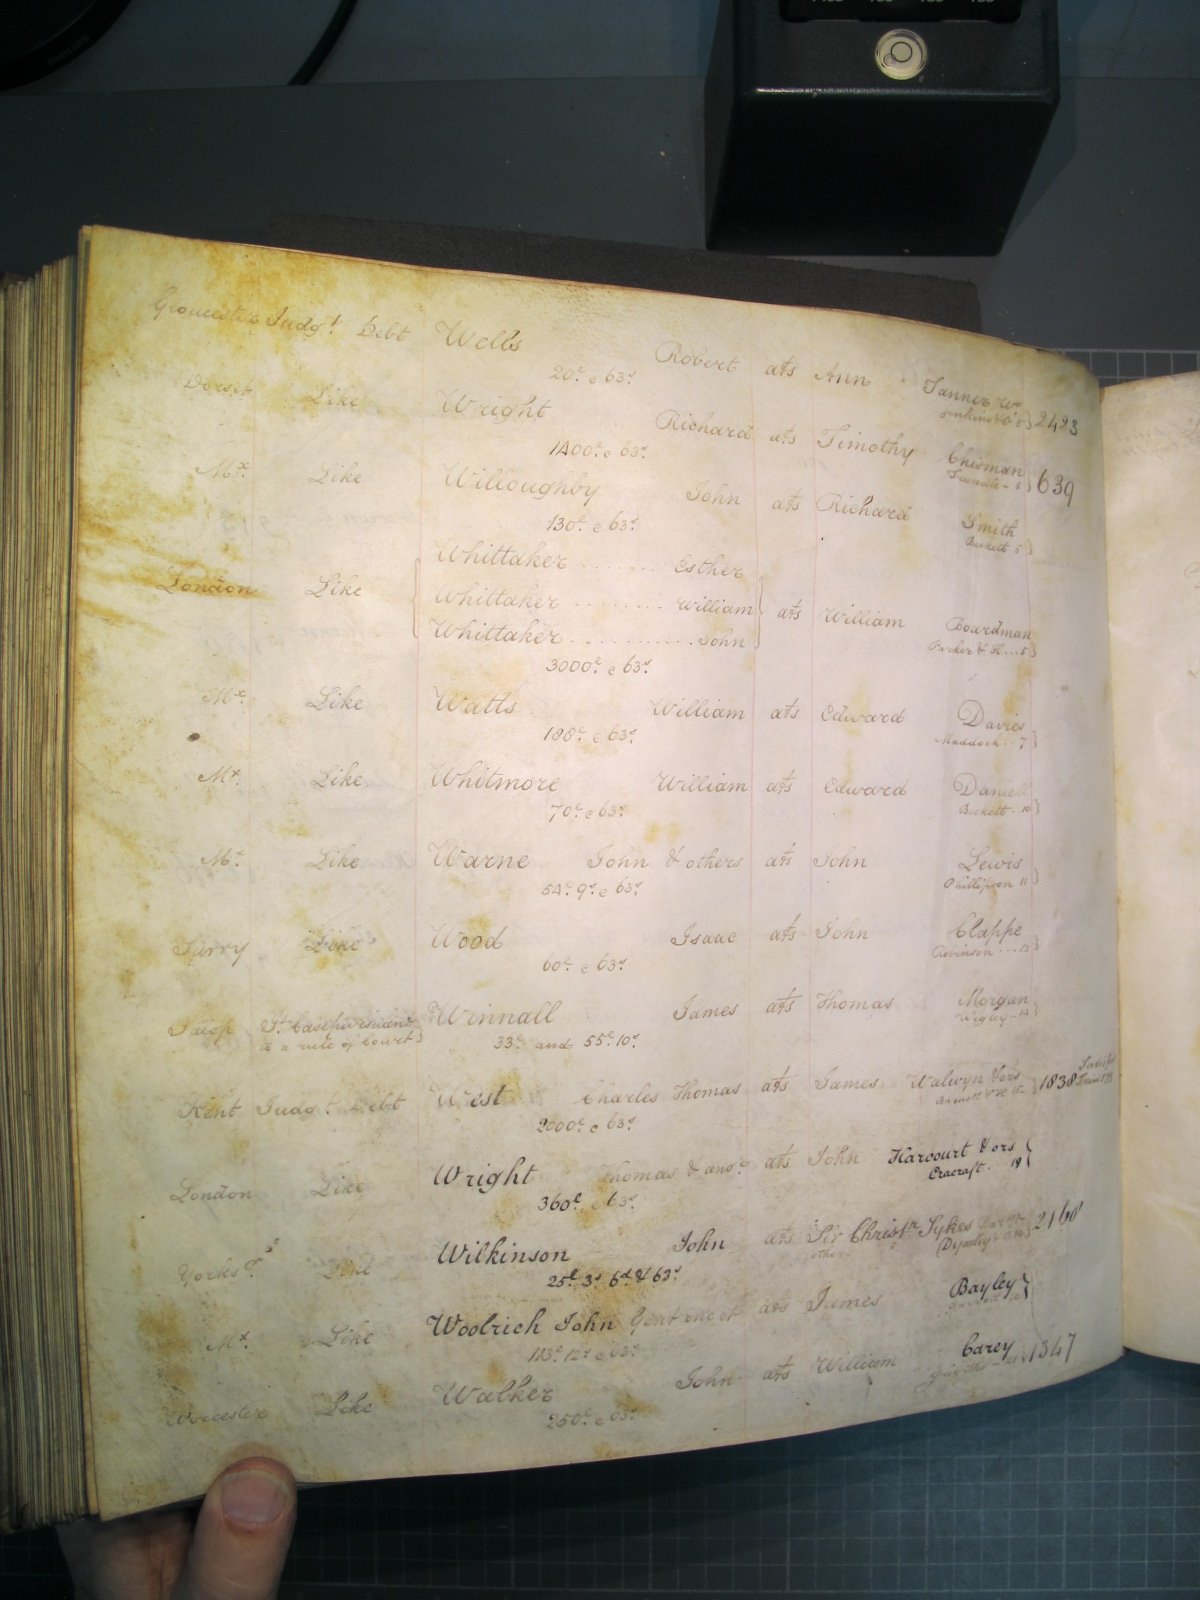 PHILIPS
Gloucester Judgt. Debt Wells Robert ats Ann Tanner Wo
20£ & 63s Jenkins & Co 5 } 2423
Dorset Like Wright Richard ats Timothy Chisman
1400£ & 63s 5 } 639
Mx. Like Willoughby John ats Richard Smith
130£ & 63s Beckett 5 }
Whittaker ....... Esther
London Like Whittaker ........ William ats William Boardman
Whittaker ........... John Parker & H...5 }
3000£ & 63s
Mx. Like Watts William ats Edward Davies
188£ & 63s Maddock .. 7 }
Mx. Like Whitmore William ats Edward Daniell
70£ & 63s Beckett .. 10 }
Mx. Like Warne John & others ats John Lewis
54£ 9s & 63s Phillipson 11 }
Surry Like Wood Isaac ats John Clappe
60£ & 63s Robinson ... 12 }
Salop Sp. Case pursuant Winnall James ats Thomas Morgan
to a rule of Court } 33£ and 55£ 10s Wigley .. 14 }
Kent Judgt. Debt West Charles Thomas ats James Walwyn & ors } 1838
2000£ & 63s
London Like Wright Thomas & anor. ats John Harcourt & ors
360£ & 63s Cracraft .. 19 }
Yorks Like Wilkinson John ats Sir Christr. Sykes 2168
25£ 3s 6d & 63s others
Mx. Like Woolrich John Gent one &c ats James Bayley
113£ 12s & 63s
Worcester Like Walker John ats William Carey } 1347
250£ & 63s